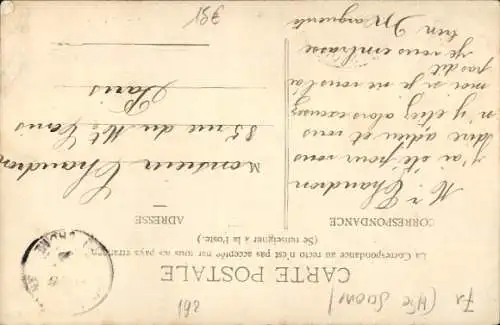 CARTE POSTALE
La Correspondance au recto n'est pas acceptée par tous les pays étrangers
(Se renseigner à la Poste.)
CORRESPONDANCE
ADRESSE
Mr Chaudron
j'ai été pour vous
dire adieu et vous
n'y étiez alors excusez
moi si je ne vous l'ai
pas dit
je vous embrasse
bien Marguerite
Monsieur Chaudron
85 rue du Mt Cenis
Paris
192